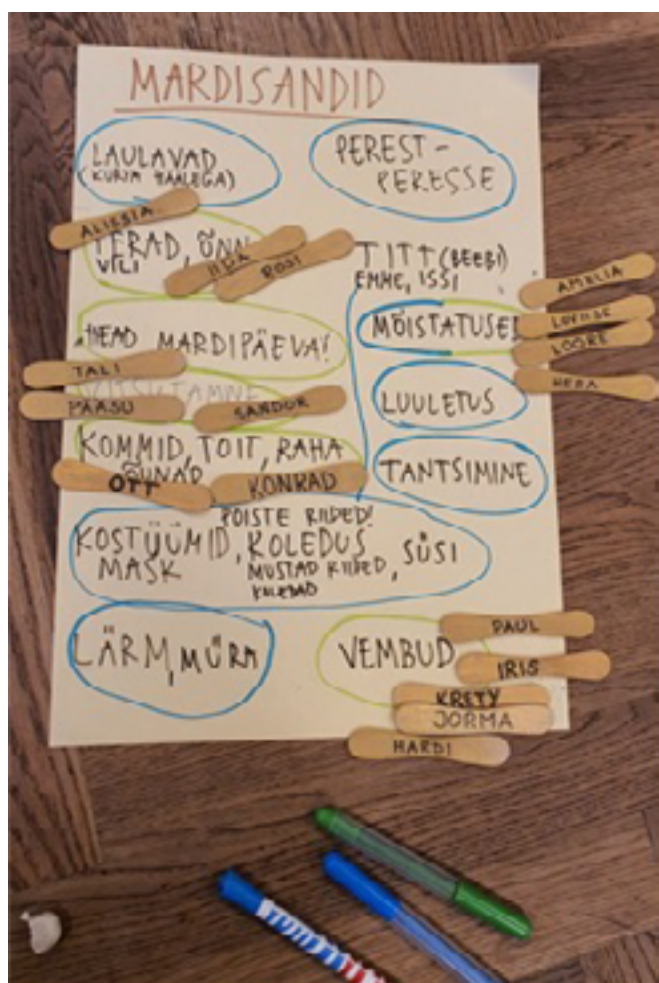 MARDISANDID
LAULAVAD
(KURJA HÄÄLEGA)
PEREST-
PERESSE
ALIISIA
TERAD, ÕNN
VILI
IIDA
ROSI
TITT (BEEBI)
EMME, ISSI
AMELIA
HEAD MARDIPÄEVA!
MÕISTATUSED
LOORE
TALI
PÄÄSU
SANDUR
LUULETUS
KOMMID, TOIT, RAHA
ÕUNAD
OTT
KONRAD
TANTSIMINE
POISTE RIIDED!
KOSTÜÜMID, KOLEDUS, SÜSI
MASK
MUSTAD RIIDED,
KOLEDAD
LÄRM, MÜRA
VEMBUD
PAUL
IRIS
KRETY
JORMA
HARDI